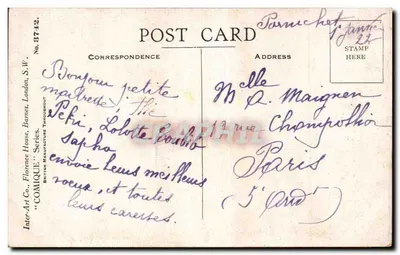 Pornichet 1er Janvier
22
POST CARD
CORRESPONDENCE
ADDRESS
STAMP
HERE
Inter-Art Co., Florence House, Barnes, London, S.W.
"COMIQUE" Series. No. 3742.
BRITISH MANUFACTURE THROUGHOUT
Bonjour petite
maîtresse,
Loulou
Sapho
envoie leurs meilleurs
voeux, et toutes
leurs caresses.
Melle
A. Maignen
13 rue
Champollion
Paris
(5e Ardt)